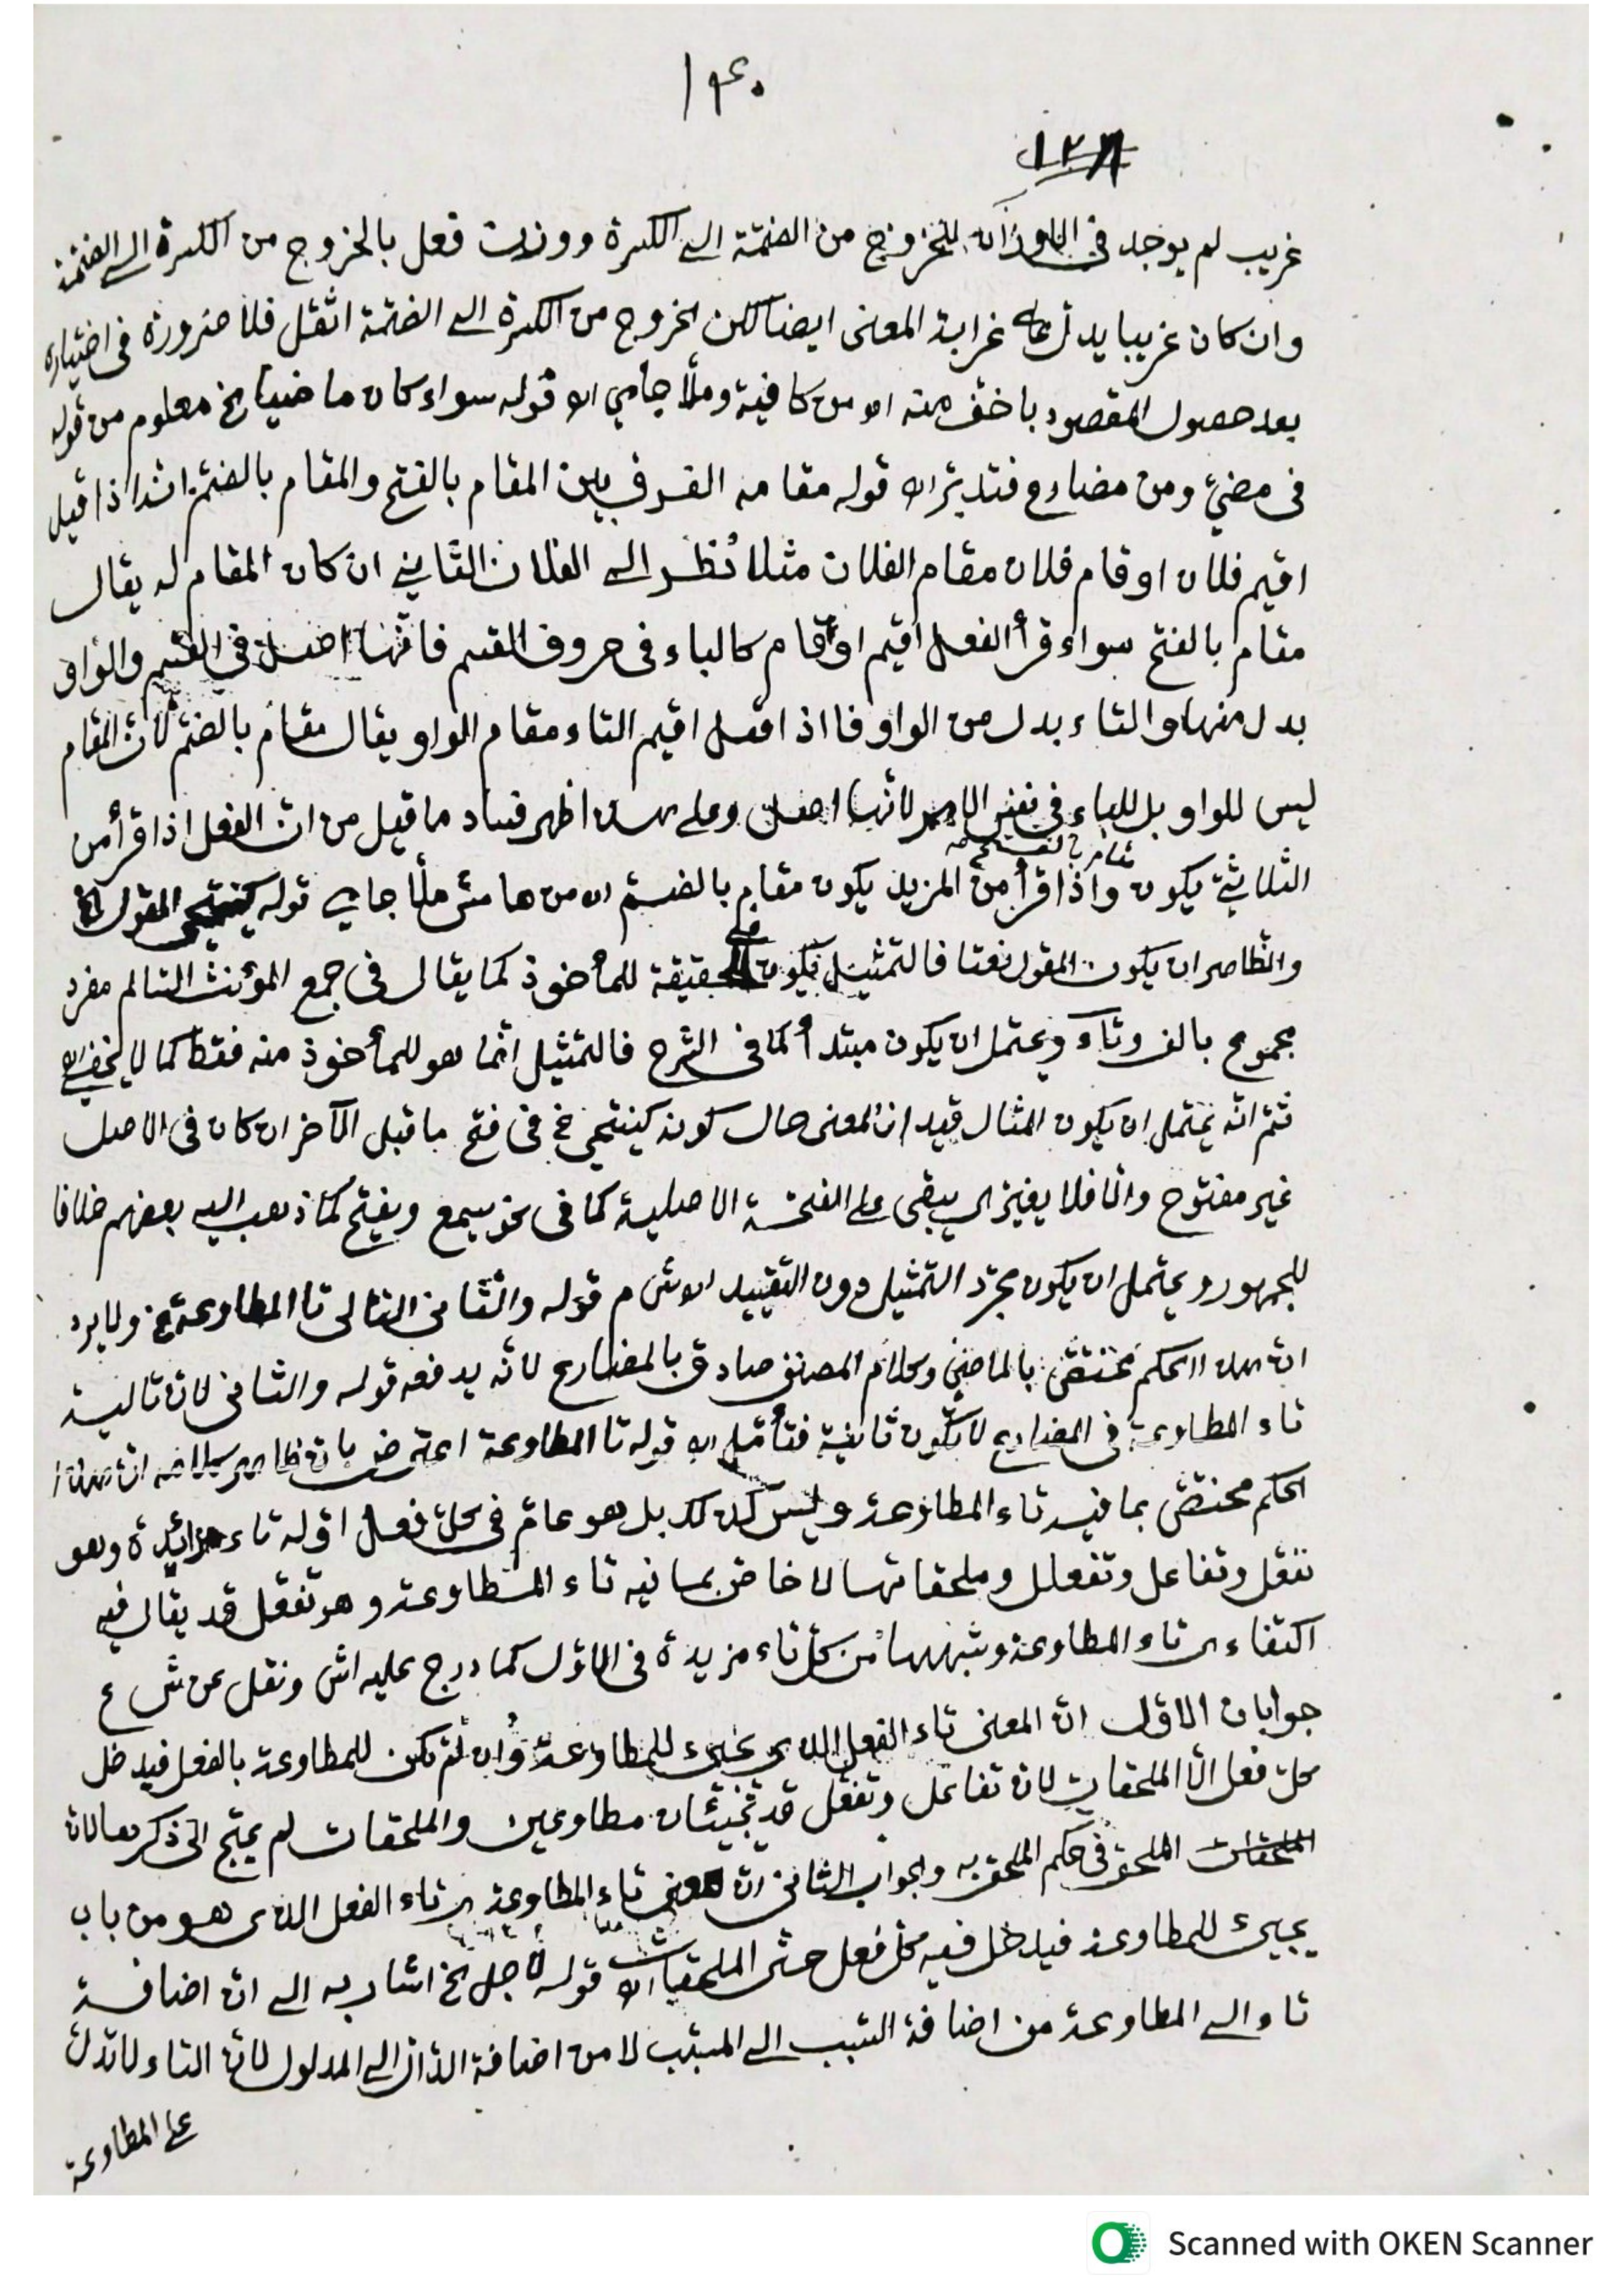 ١٤٠
غريب لم يوجد في الاوزان للخروج من الضمّة الى الكسرة ووزن فعل بالخروج من الكسرة الى الضمّة
وان كان غريبا يدلّ على غرابة المعنى ايضا لكن الخروج من الكسرة الى الضمّة اثقل فلا ضرورة في اختياره
بعد حصول المقصود باخفّ منه اه من كافية وملّا جامي اه قوله سواء كان ماضيا الخ معلوم من قوله
في مضيّ ومن مضارع فتدبّر اه قوله مقامه الفرق بين المقام بالفتح والمقام بالضمّ انه اذا قيل
اقيم فلان او قام فلان مقام الفلان مثلا نُظر الى الفلان الثاني ان كان المقام له يقال
مقام بالفتح سواء قرأ الفعل اقيم او قام كالباء في حروف القسم فانّها اصل في القسم والواو
بدل منها والتاء بدل من الواو فاذا قيل اقيم التاء مقام الواو يقال مقام بالضمّ لانّ المقام
ليس للواو بل للباء في نفس الامر لانّها اصل وعلى هذا ظهر فساد ما قيل من انّ الفعل اذا قرأ من
الثلاثيّ يكون مقام بالفتح واذا قرأ من المزيد يكون مقام بالضمّ اه من هامش ملّا جامي قوله كينتحي المقول الخ
والظاهر ان يكون المقول نعتا فالتمثيل يكون في الحقيقة للمأخوذ كما يقال في جمع المؤنث السالم مفرد
مجموع بالف وتاء ويحتمل ان يكون مبتدأ كما في الشرح فالتمثيل انّما هو للمأخوذ منه فقط كما لا يخفى اه
ثمّ انّه يحتمل ان يكون المثال قيد اذ المعنى حال كونه كينتحي في فتح ما قبل الآخر ان كان في الاصل
غير مفتوح والّا فلا يغيّر اي يبقى على الفتحة الاصلية كما في نحو يسمع ويفتح كما ذهب اليه بعضهم خلافا
للجمهور ويحتمل ان يكون مجرّد التمثيل دون التقييد اه ش م قوله والثاني التالي تا المطاوعة الخ ولا يرد
انّ هذا الحكم مختصّ بالماضي وكلام المصنف صادق بالمضارع لانّه يدفعه قوله والثاني لان تالية
تاء المطاوعة في المضارع لا تكون ثانية فتأمّل اه قوله تا المطاوعة اعترض بانّ ظاهر كلامه انّ هذا
الحكم مختصّ بما فيه تاء المطاوعة وليس كذلك بل هو عامّ في كلّ فعل اوّله تاء زائدة وهو
تفعّل وتفاعل وتفعلل وملحقاتها لا خاصّ بما فيه تاء المطاوعة وهو تفعّل قد يقال فيه
اكتفاء اي تاء المطاوعة وشبهها من كلّ تاء مزيدة في الاوّل كما درج عليه اش ونقل عن ش ع
جوابان الاوّل انّ المعنى تاء الفعل الذي يجيء للمطاوعة وان لم تكن للمطاوعة بالفعل فيدخل
كلّ فعل الّا الملحقات لان تفاعل وتفعّل قد تجيئان مطاوعين والملحقات لم يحتج الى ذكرها لان
الملحق في حكم الملحق به والجواب الثاني انّ معنى تاء المطاوعة اي تاء الفعل الذي هو من باب
يجيء للمطاوعة فيدخل فيه كلّ فعل حتّى الملحقات اه قوله لاجل الخ اشار به الى ان اضافة
تاء الى المطاوعة من اضافة السّبب الى المسبّب لا من اضافة الدّال الى المدلول لانّ التاء لا تدلّ
على المطاوعة
Scanned with OKEN Scanner